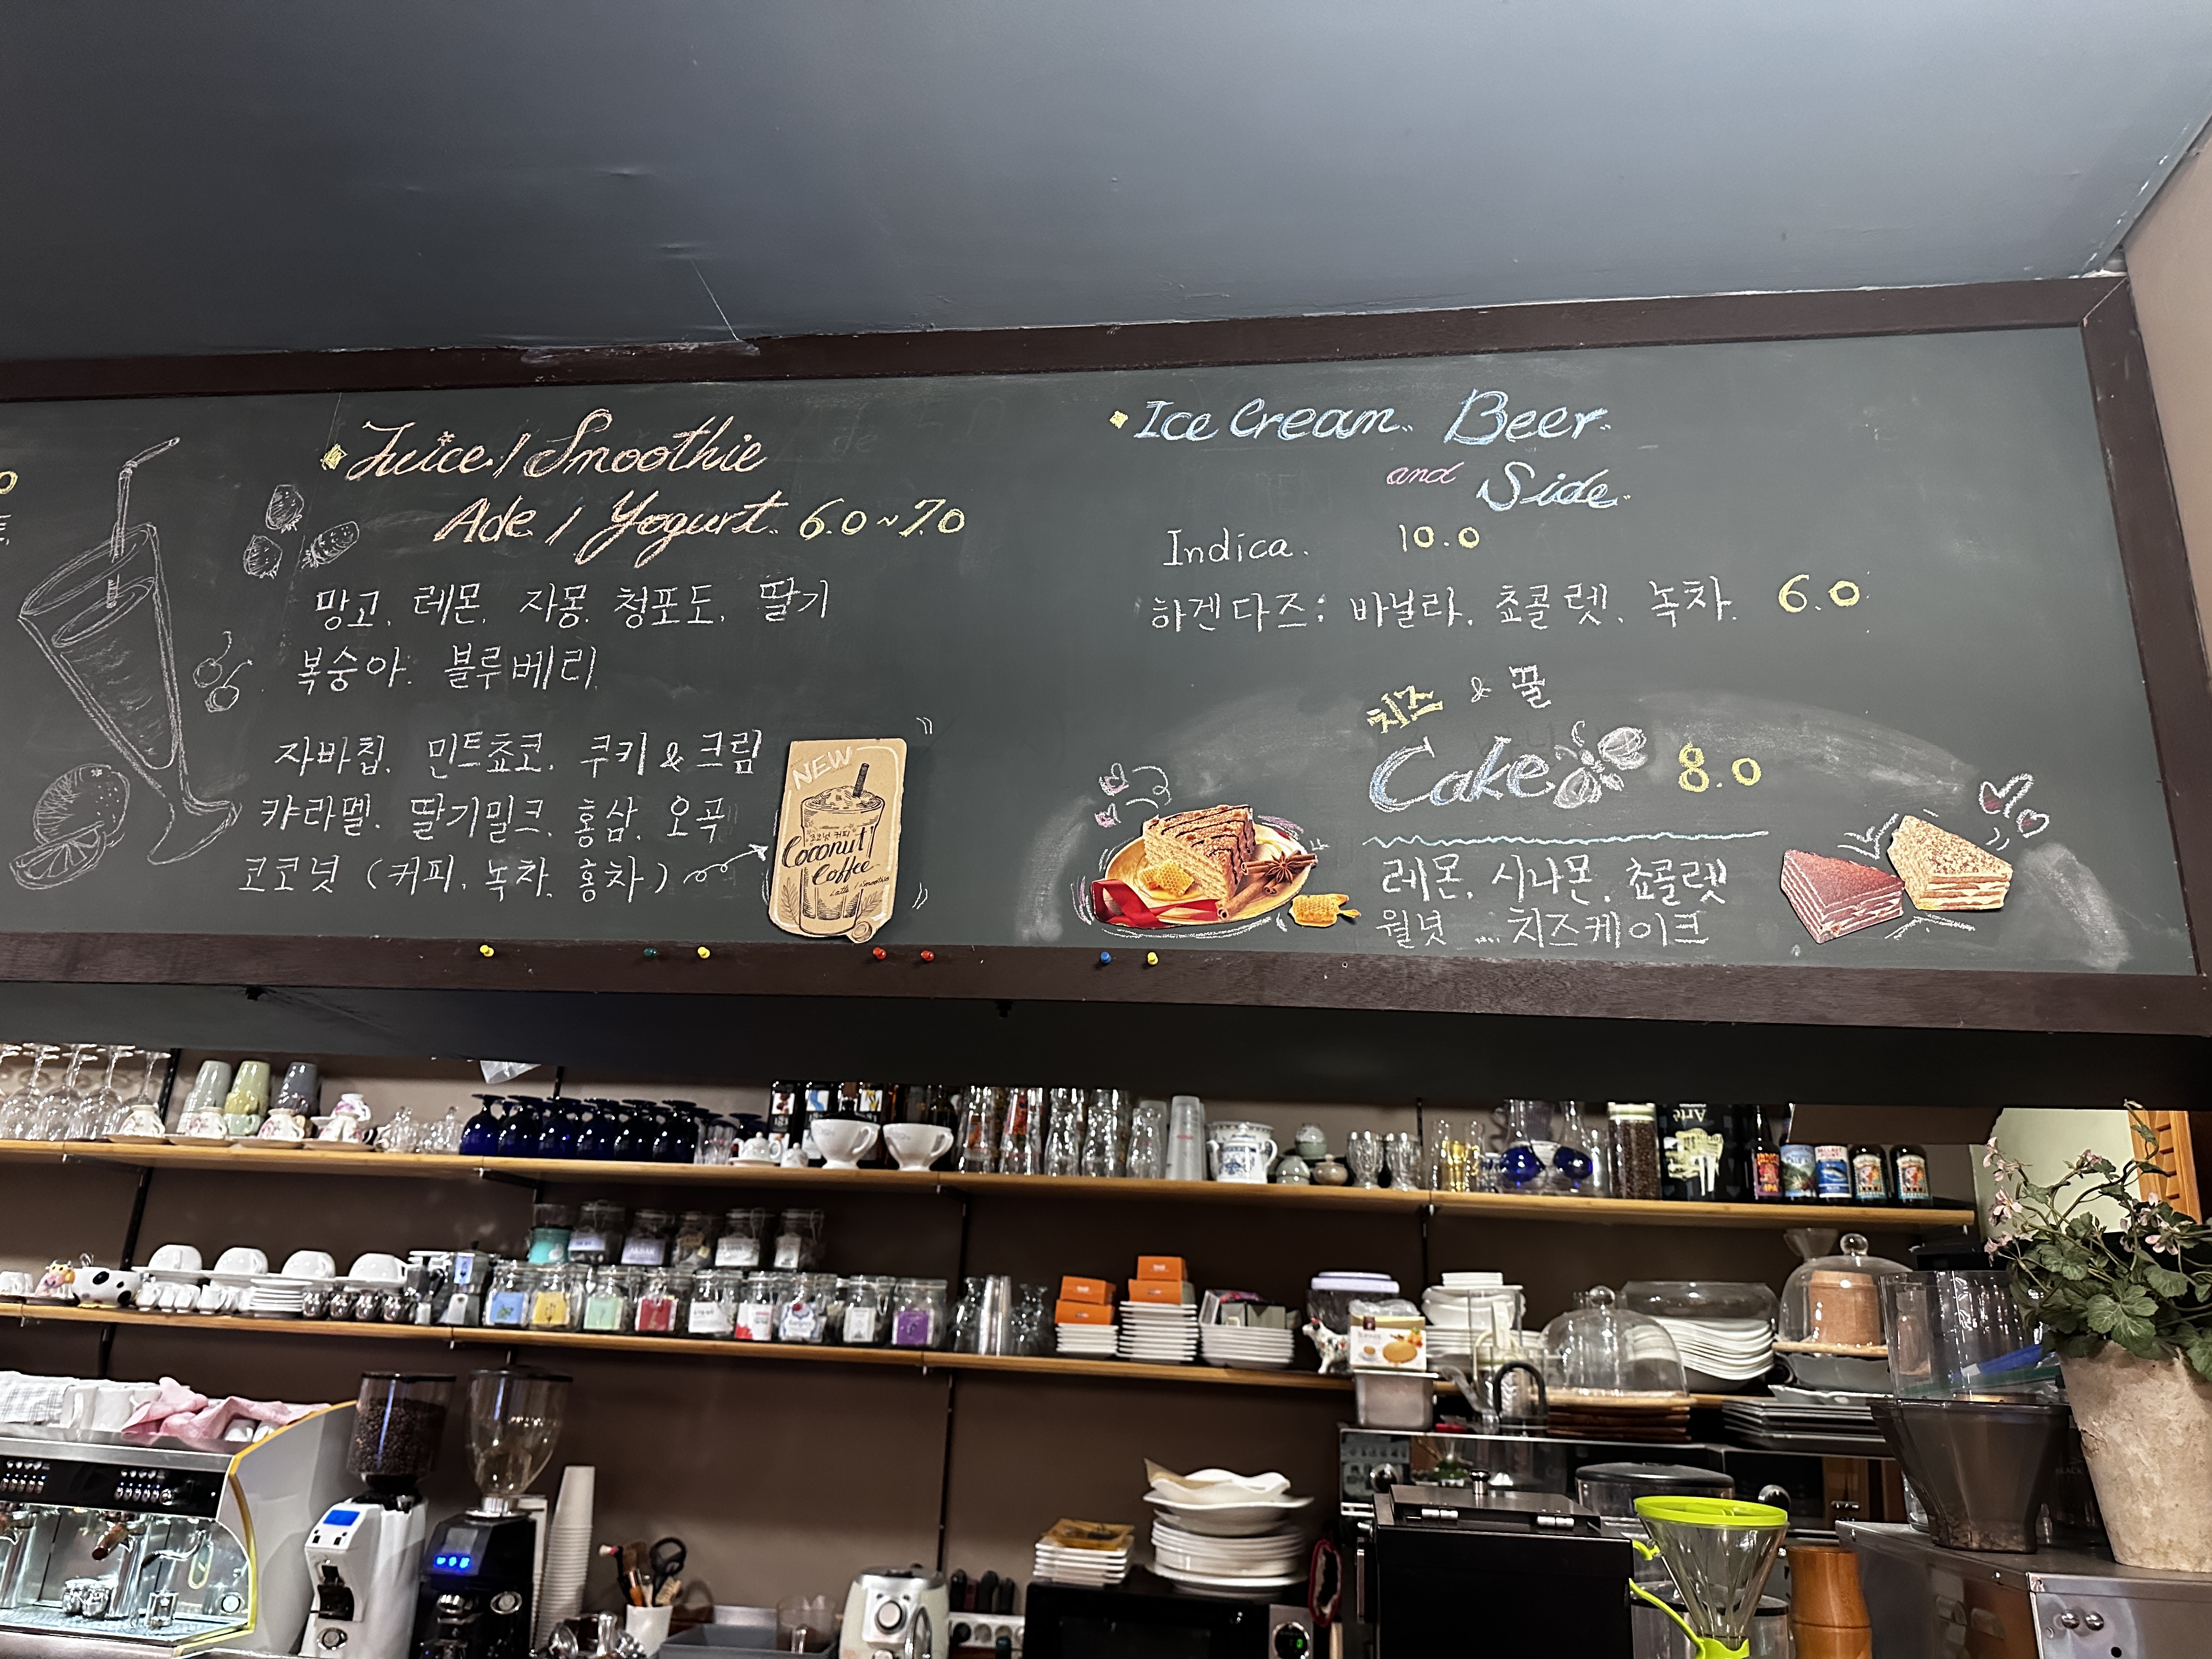 Juice / Smoothie
Ade / Yogurt 6.0~7.0
망고, 레몬, 자몽, 청포도, 딸기
복숭아, 블루베리
자바칩, 민트쵸코, 쿠키 & 크림
캬라멜, 딸기밀크, 홍삼, 오곡
코코넛 (커피, 녹차, 홍차)
NEW
코코넛 커피
Coconut
Coffee
Latte / Smoothie
Ice Cream.. Beer..
and Side..
Indica. 10.0
하겐다즈: 바닐라, 쵸콜렛, 녹차. 6.0
치즈 & 꿀
Cake 8.0
레몬, 시나몬, 쵸콜렛
월넛 .... 치즈케이크